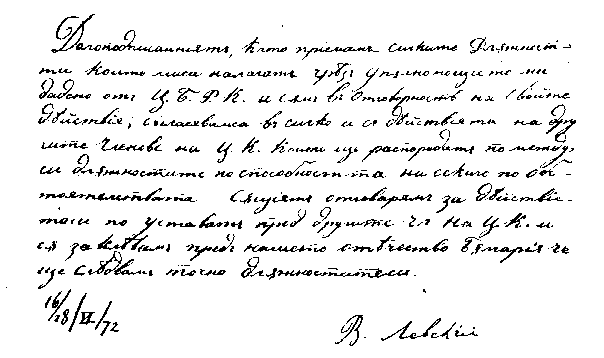 Долоподписанниятъ, като приемамъ сичките Длъжност-
ти които миса налагатъ чрѣзъ упълномощието ми
дадено отъ Ц. Б. Р. К. и съмъ въ отговорность на своите
дѣйствия, съгласявамса въ сичко и съ дѣйствията на дру
гите членове на Ц. К. които ще распорѣдятъ помежду
си длъжностите по способностьта на секиго по об-
тоятелствата Същиятъ отговарямъ за дѣйствие-
то си по уставатъ прѣд другите чл на Ц. К. и
ся заклѣвамъ прѣдъ нашето отѣчество България че
ще слѣдвамъ точно длъжноститеси.
16/28/VI/72
В. Левскій